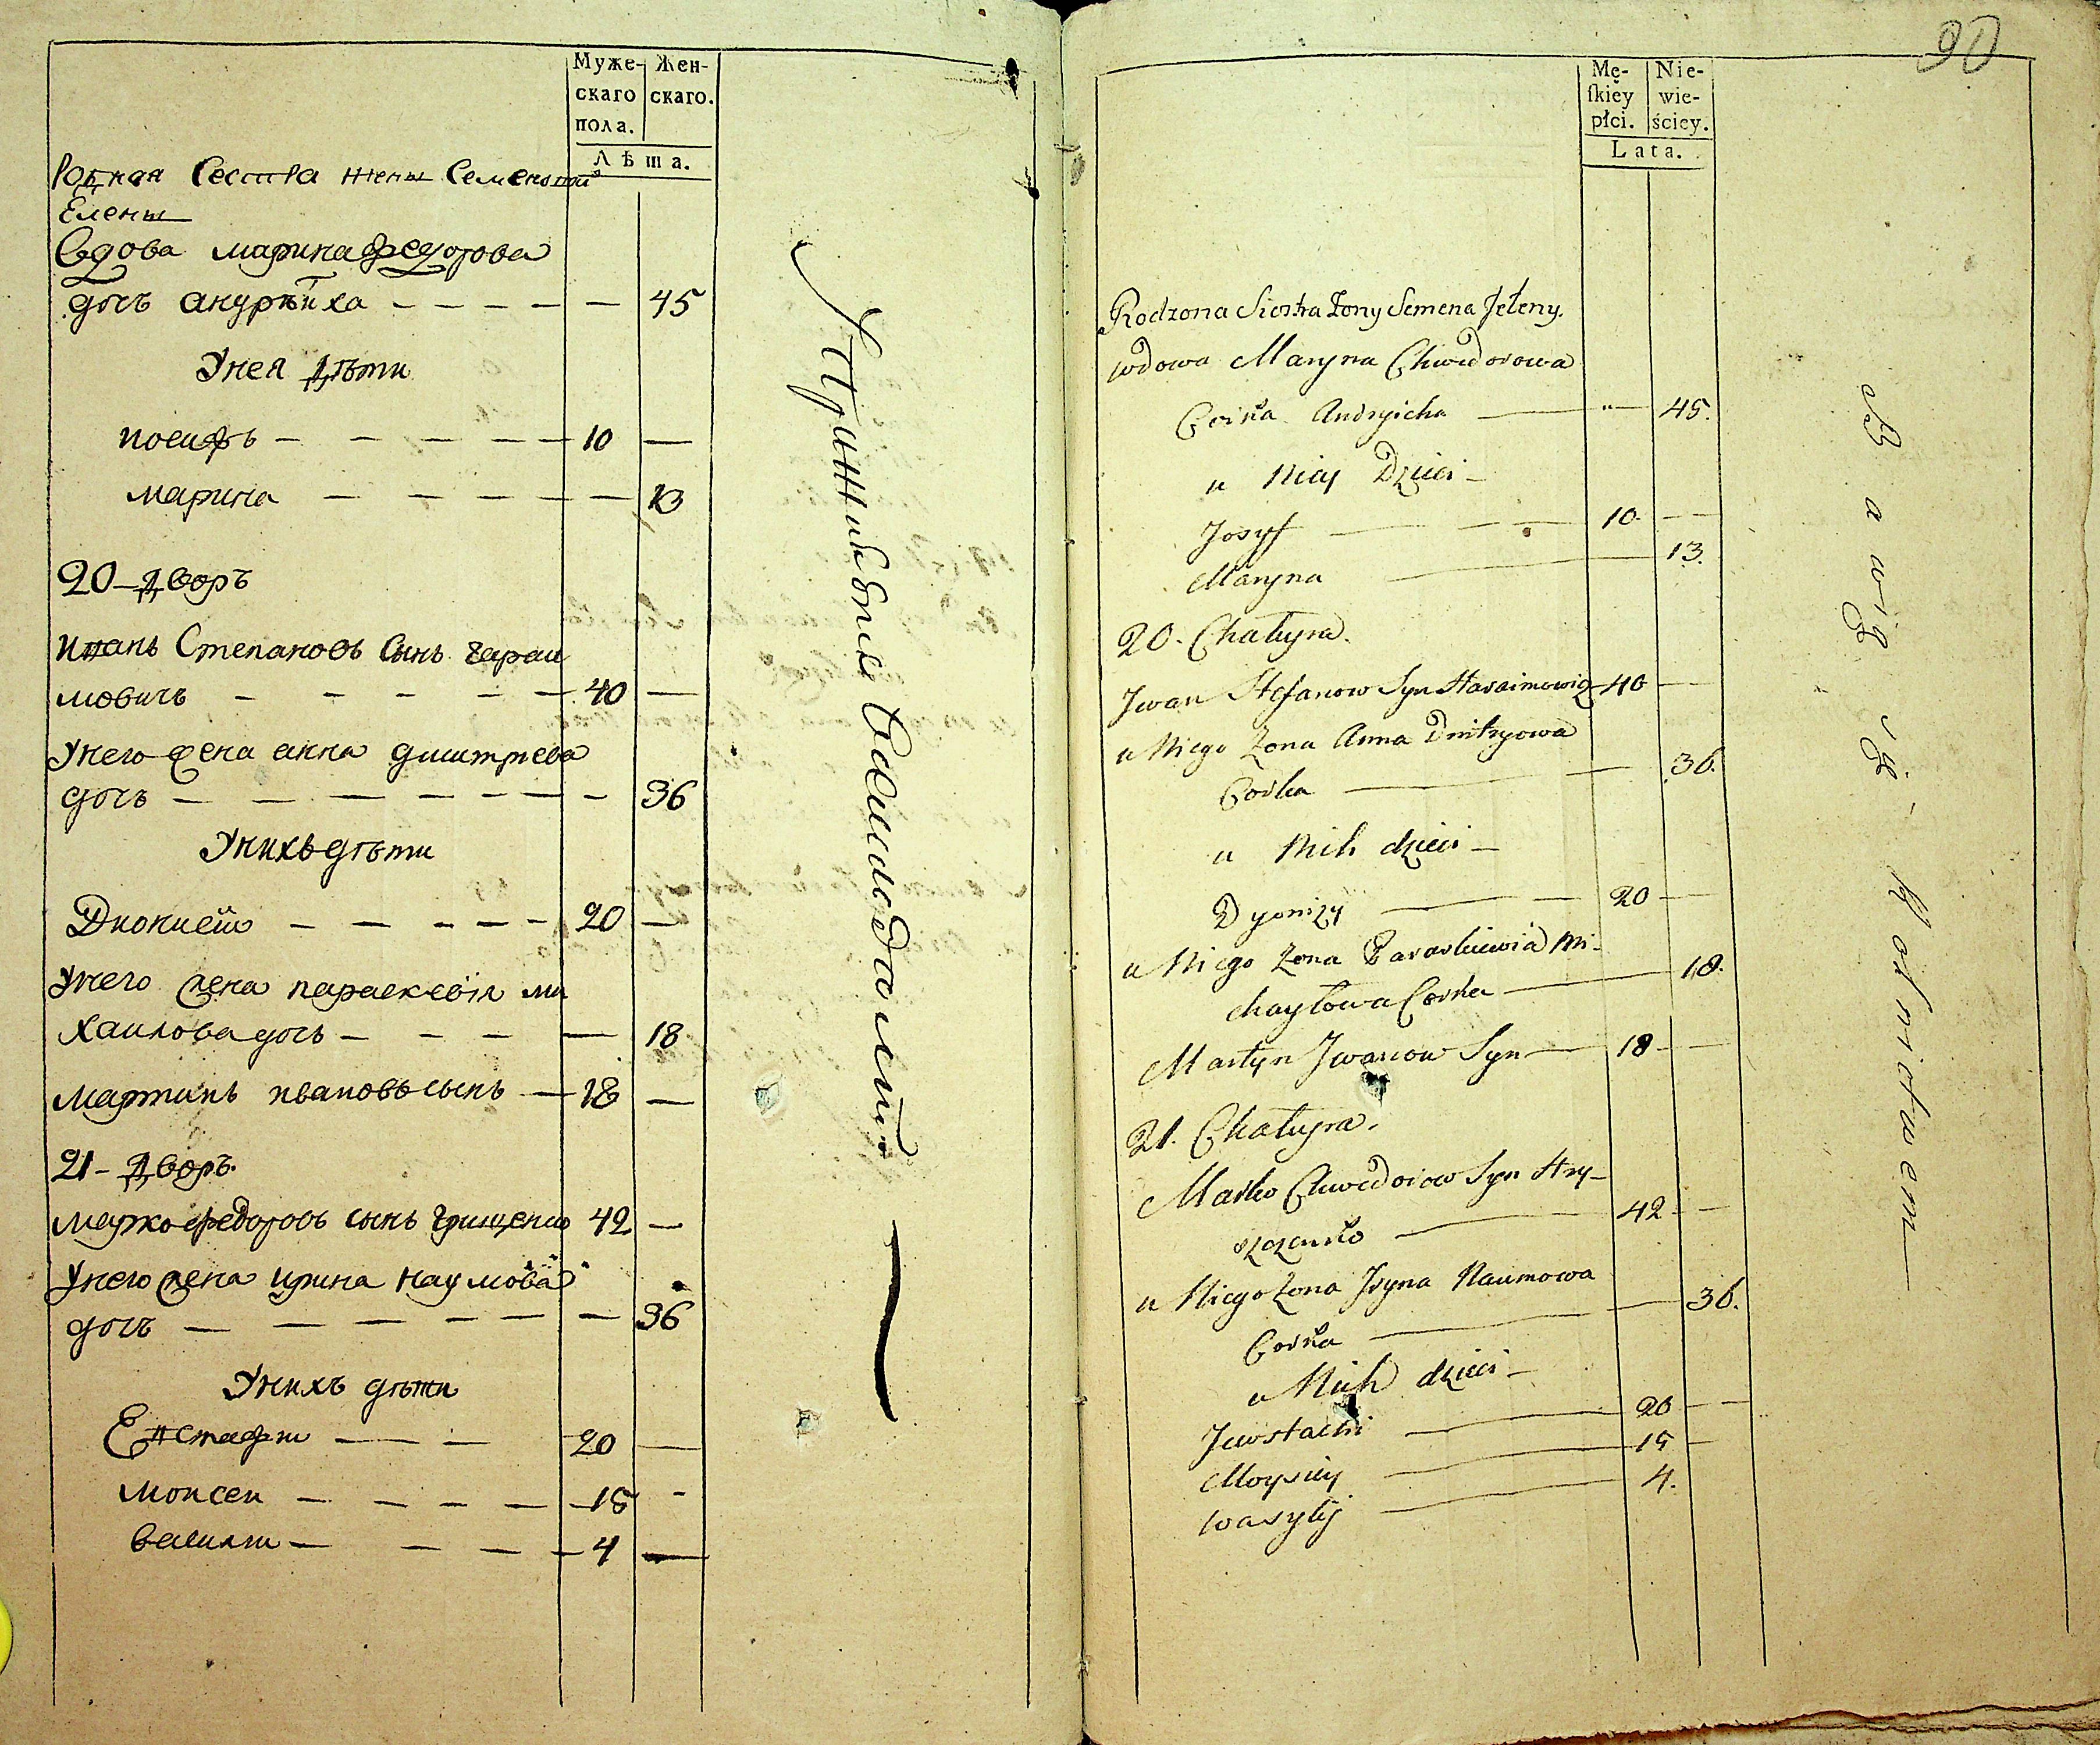 Муже-
скаго
пола.
Жен-
скаго.
Лѣта.
Родная Сестра жены Семеновой
Елены
Вдова марина федорова
дочь андрѣиха — — — — — 45
Унея Дѣти
иосифъ — — — — — 10 —
марина — — — — — 13
20 — Дворъ
иванъ Степановъ Сынъ гараи
мовичь — — — — — 40 —
Унего жена анна дмитриева
дочь — — — — — — — 36
Унихъ дѣти
Дионисей — — — — — 20 —
Унего жена параскевія ми
хаилова дочь — — — — 18
мартинъ ивановъ сынъ — 18 —
21 — Дворъ.
марко федоровъ сынъ грищенко 42 —
Унего жена ирина наумова
дочь — — — — — — — 36
Унихъ дѣти
Евстафи — — — 20 —
моисеи — — — — 15 -
василы — — — — 4 —
90
Mę-
ſkiey
płci.
Nie-
wie-
ściey.
Lata.
Rodzona Siostra Zony Semena Jeleny.
wdowa Maryna Chwedorowa
Corka Andryicha — " — 45.
u Niey Dzieci —
Josyf — — — 10. — —
Maryna — — 13.
20. Chałupa.
Jwan Stefanow Syn Haraimowicz 40 — —
u Niego Zona Anna Dmitryowa
Corka — — 36.
u Nich dzieci —
Dyonizy — — 20 —
u Niego Zona Paraskiewia Mi-
chayłowa Corka — 18.
Martyn Jwanow Syn — 18 — —
21. Chałupa.
Marko Chwedorow Syn Hry-
szczenko — 42 — —
u Niego Zona Jryna Naumowa
Corka — — 36.
u Nich dzieci —
Jewstachi — 20 — —
Moysiey — 15 —
Wasylij — 4.